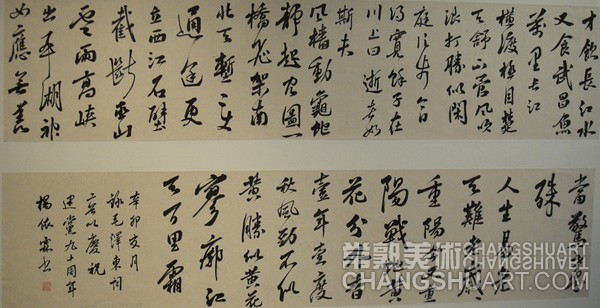 才飲長江水
又食武昌魚
萬里長江
橫渡極目楚
天舒不管風吹
浪打勝似閑
庭信步今日
得寬餘子在
川上曰逝者如
斯夫
風檣動龜蛇
靜起宏圖一
橋飛架南
北天塹變
通途更
立西江石壁
截斷巫山
雲雨高峽
出平湖神
女應無恙
當驚世界
殊
人生易老
天難老歲歲
重陽今又重
陽戰地黃
花分外香
壹年壹度
秋風勁不似
勝似
寥廓江
天萬里霜
辛卯 月
詠毛澤東詞
二首以慶祝
建黨九十周年
楊依霖書
常熟美術
CHANGSHUART.COM